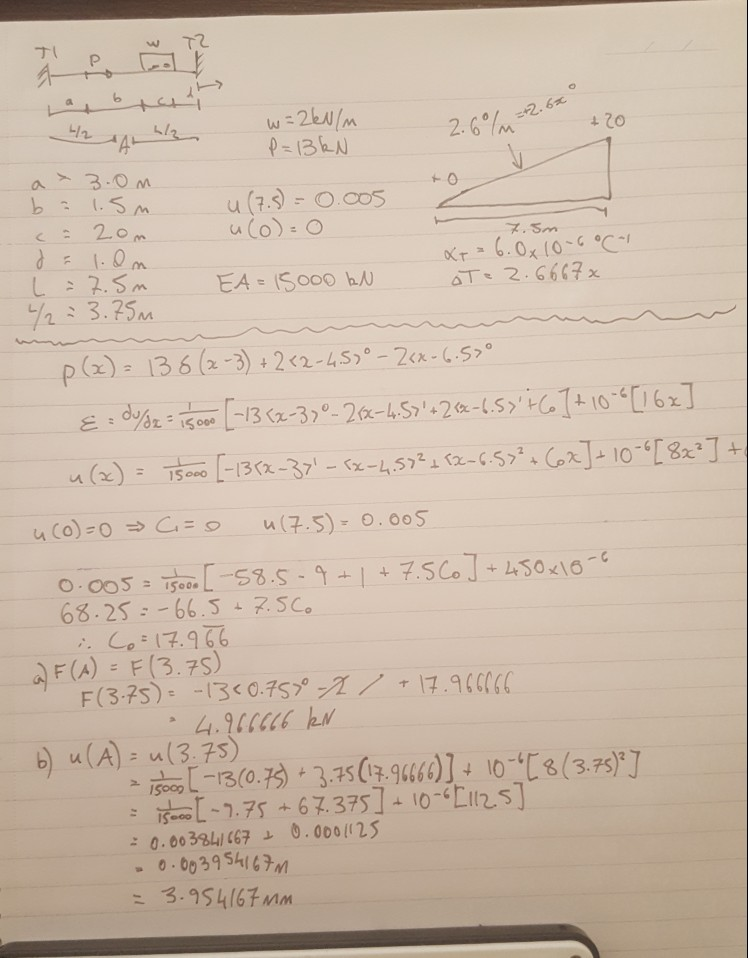 T1 P w T2
a b c d
L/2 A L/2
w = 2kN/m
P = 13kN
2.6°/m = 2.6x°
+20
+0
7.5m
a = 3.0m
b = 1.5m
c = 2.0m
d = 1.0m
L = 7.5m
L/2 = 3.75m
u(7.5) = 0.005
u(0) = 0
EA = 15000 kN
αT = 6.0x10^-6 °C^-1
ΔT = 2.6667x
p(x) = 13δ(x-3) + 2<x-4.5>⁰ - 2<x-6.5>⁰
ε = du/dx = 1/15000 [-13<x-3>⁰ - 2<x-4.5>¹ + 2<x-6.5>¹ + C₀] + 10^-6 [16x]
u(x) = 1/15000 [-13<x-3>¹ - <x-4.5>² + <x-6.5>² + C₀x] + 10^-6 [8x²] +
u(0)=0 ⇒ C₁ = 0 u(7.5) = 0.005
0.005 = 1/15000 [-58.5 - 9 + 1 + 7.5C₀] + 450x10^-6
68.25 = -66.5 + 7.5C₀
∴ C₀ = 17.966
a) F(A) = F(3.75)
F(3.75) = -13<0.75>⁰ + 17.966666
= 4.966666 kN
b) u(A) = u(3.75)
= 1/15000 [-13(0.75) + 3.75(17.96666)] + 10^-6 [8(3.75)²]
= 1/15000 [-9.75 + 67.375] + 10^-6 [112.5]
= 0.003841667 + 0.0001125
= 0.003954167m
= 3.954167mm